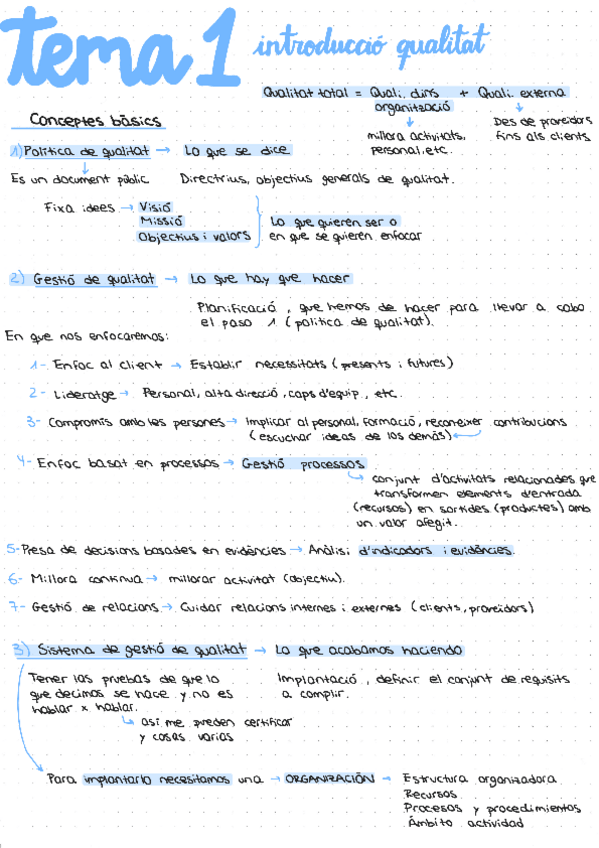 tema 1 introducció qualitat
Qualitat total = Quali. dins + Quali. externa
organització
millora activitats, personal, etc.
Des de proveïdors fins als clients
Conceptes bàsics
1) Política de qualitat → Lo que se dice
Es un document públic Directrius, objectius generals de qualitat.
Fixa idees → Visió
Missió
Objectius i valors
Lo que quieren ser o
en que se quieren enfocar
2) Gestió de qualitat → Lo que hay que hacer
Planificació, que hemos de hacer para llevar a cabo
el paso 1 (política de qualitat).
En que nos enfocaremos:
1- Enfoc al client → Establir necessitats (presents i futures)
2- Lideratge → Personal, alta direcció, caps d'equip, etc.
3- Compromís amb les persones → Implicar al personal, formació, reconeixer contribucions
(escuchar ideas de los demás) ←
4- Enfoc basat en processos → Gestió processos
conjunt d'activitats relacionades que
transformen elements d'entrada
(recursos) en sortides (productes) amb
un valor afegit.
5- Presa de decisions basades en evidències → Anàlisi d'indicadors i evidències.
6- Millora continua → millorar activitat (objectiu).
7- Gestió de relacions → Cuidar relacions internes i externes (clients, proveïdors)
3) Sistema de gestió de qualitat → Lo que acabamos haciendo
Tener las pruebas de que lo
que decimos se hace y no es
hablar x hablar.
Implantació, definir el conjunt de requisits
a complir.
así me pueden certificar
y cosas varias
Para implantarlo necesitamos una → ORGANIZACIÓN → Estructura organizadora
Recursos
Procesos y procedimientos
Ámbito actividad